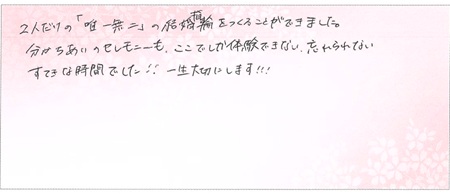 2人だけの「唯一無二」の結婚指輪をつくることができました。
分かちあいのセレモニーも、ここでしか体験できない、忘れられない
すてきな時間でした!! 一生大切にします!!!